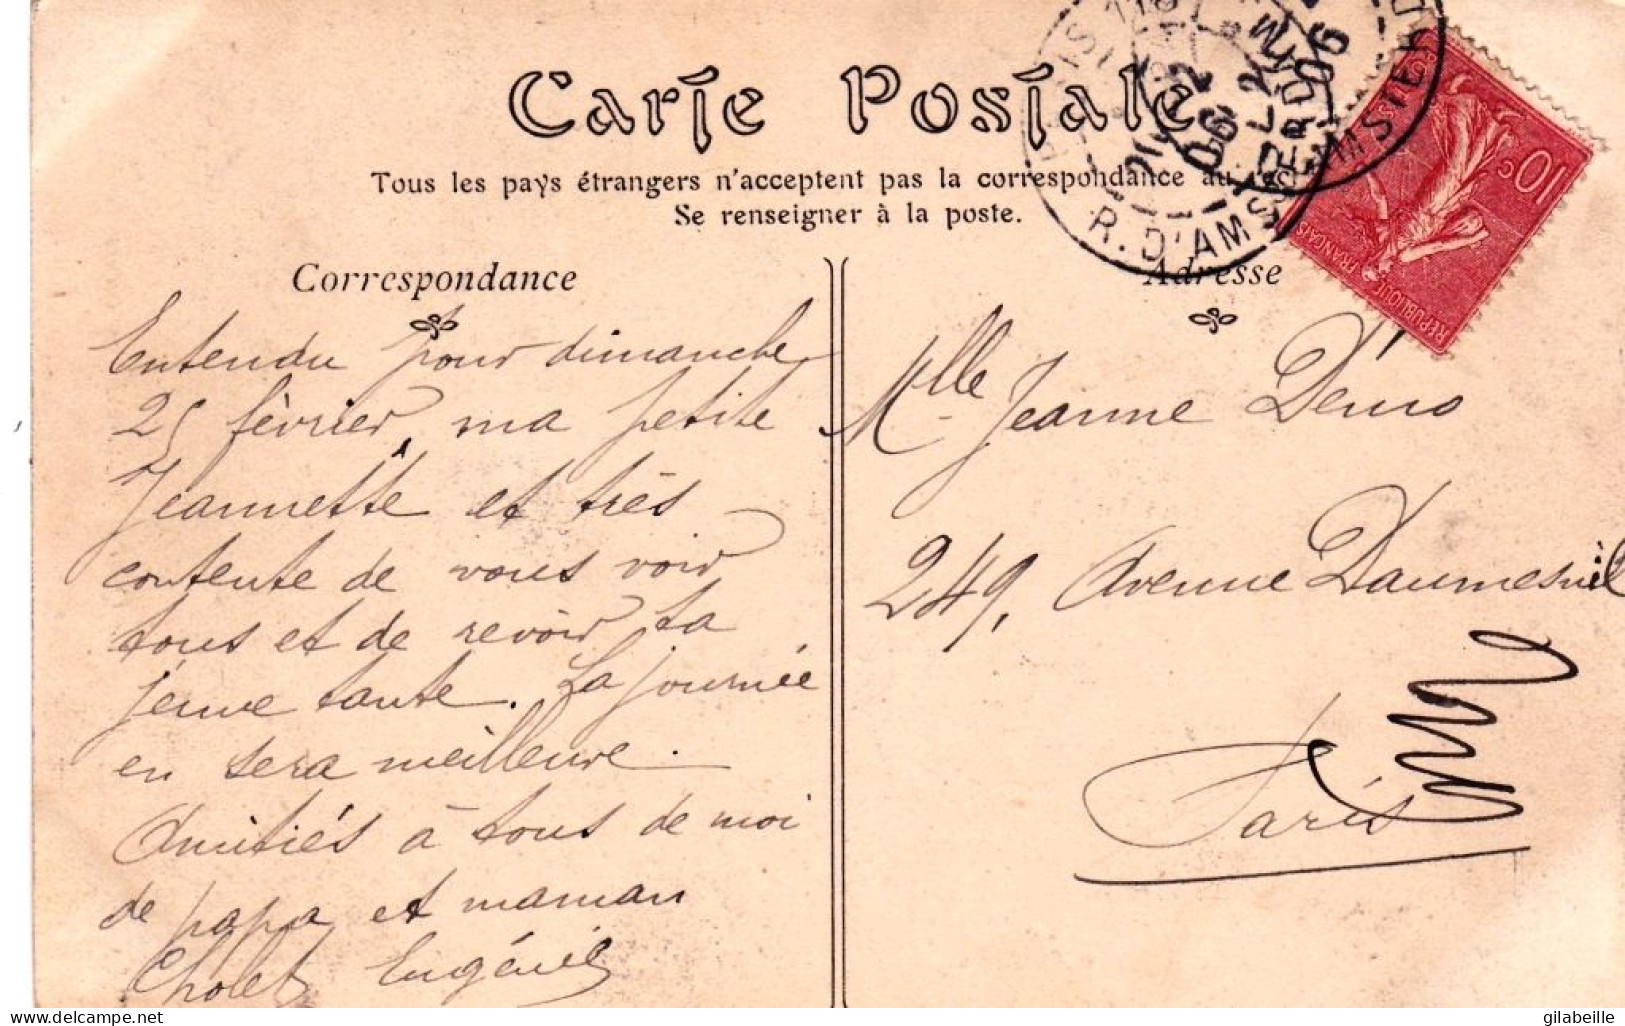 Carte Postale
Tous les pays étrangers n'acceptent pas la correspondance au
Se renseigner à la poste.
R. D'AMSTERD
06
10c
RÉPUBLIQUE FRANÇAISE
Correspondance
Entendu pour dimanche
25 février, ma petite
Jeannette et très
contente de vous voir
tous et de revoir ta
jeune tante. La journée
en sera meilleure.
Amitiés à tous de moi
de papa et maman
Cholet Eugénie
Adresse
Mlle Jeanne
249, Avenue Daumesnil
Paris
https://www.delcampe.net
gilabeille